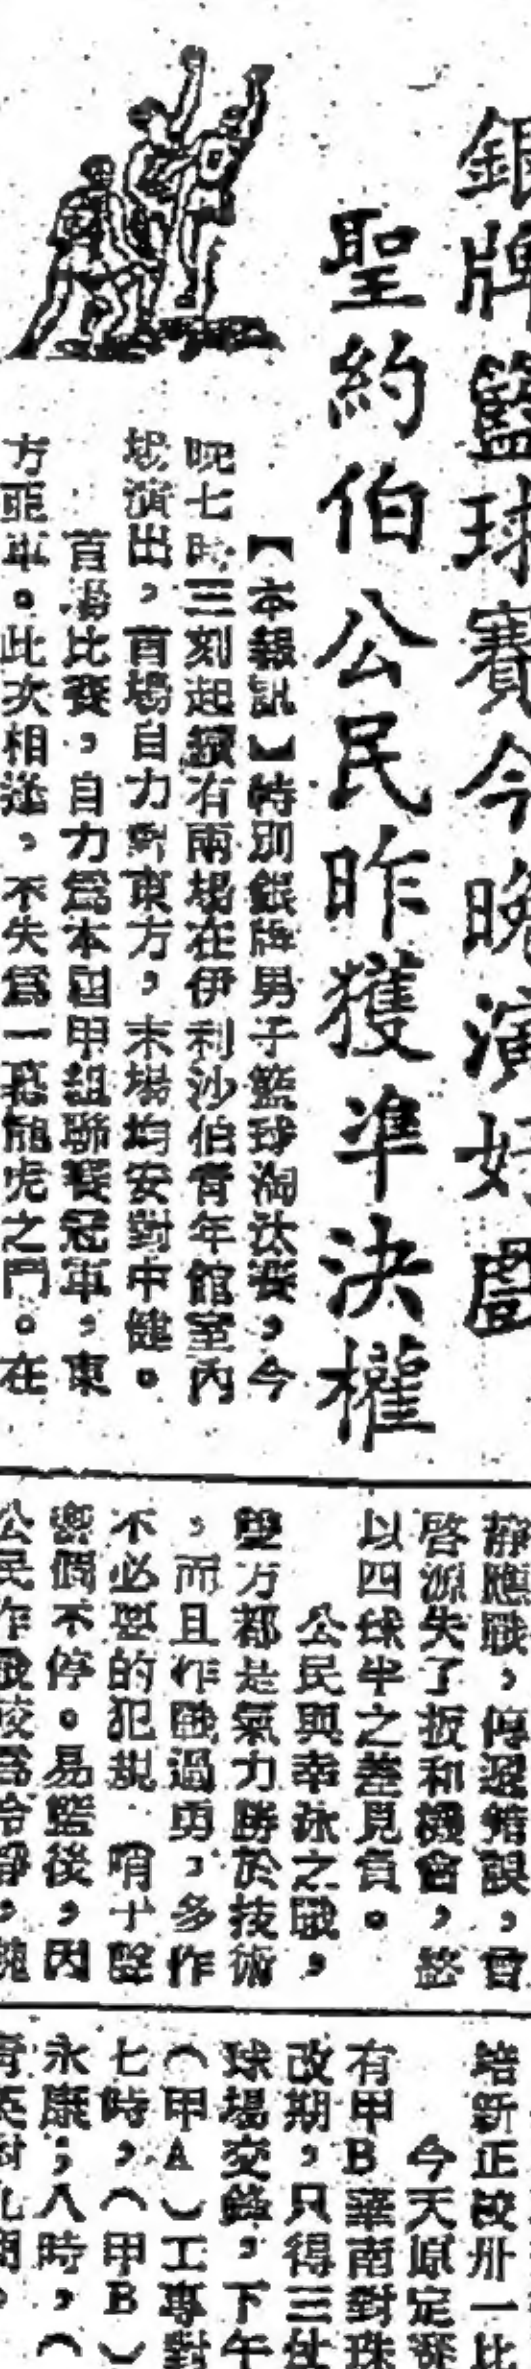 銀牌籃球賽今晚演好戲
聖約伯公民昨獲準決權
【本報訊】特別銀牌男子籃球淘汰賽，今
晚七時三刻起續有兩場在伊利沙伯青年館室內
塲演出，首場自力對東方，末場均安對中健。
首場比賽，自力為本屆甲組聯賽冠軍，東
方亞軍。此次相逢，不失為一幕龍虎之鬥。在
靜應戰，傳遞錯誤，曾
啓源失了扳和機會，
以四球半之差見負。
公民與幸泳之戰，
雙方都是氣力勝於技術
，而且作戰過勇，多作
不必要的犯規 哨子聲
響個不停。易籃後，因
公民作戰較為冷靜，
培新正校卅一比
今天原定
有甲B華南對珠
改期，只得三仗
球場交鋒，下午
（甲A）工專對
七時，（甲B）
永康；八時，（